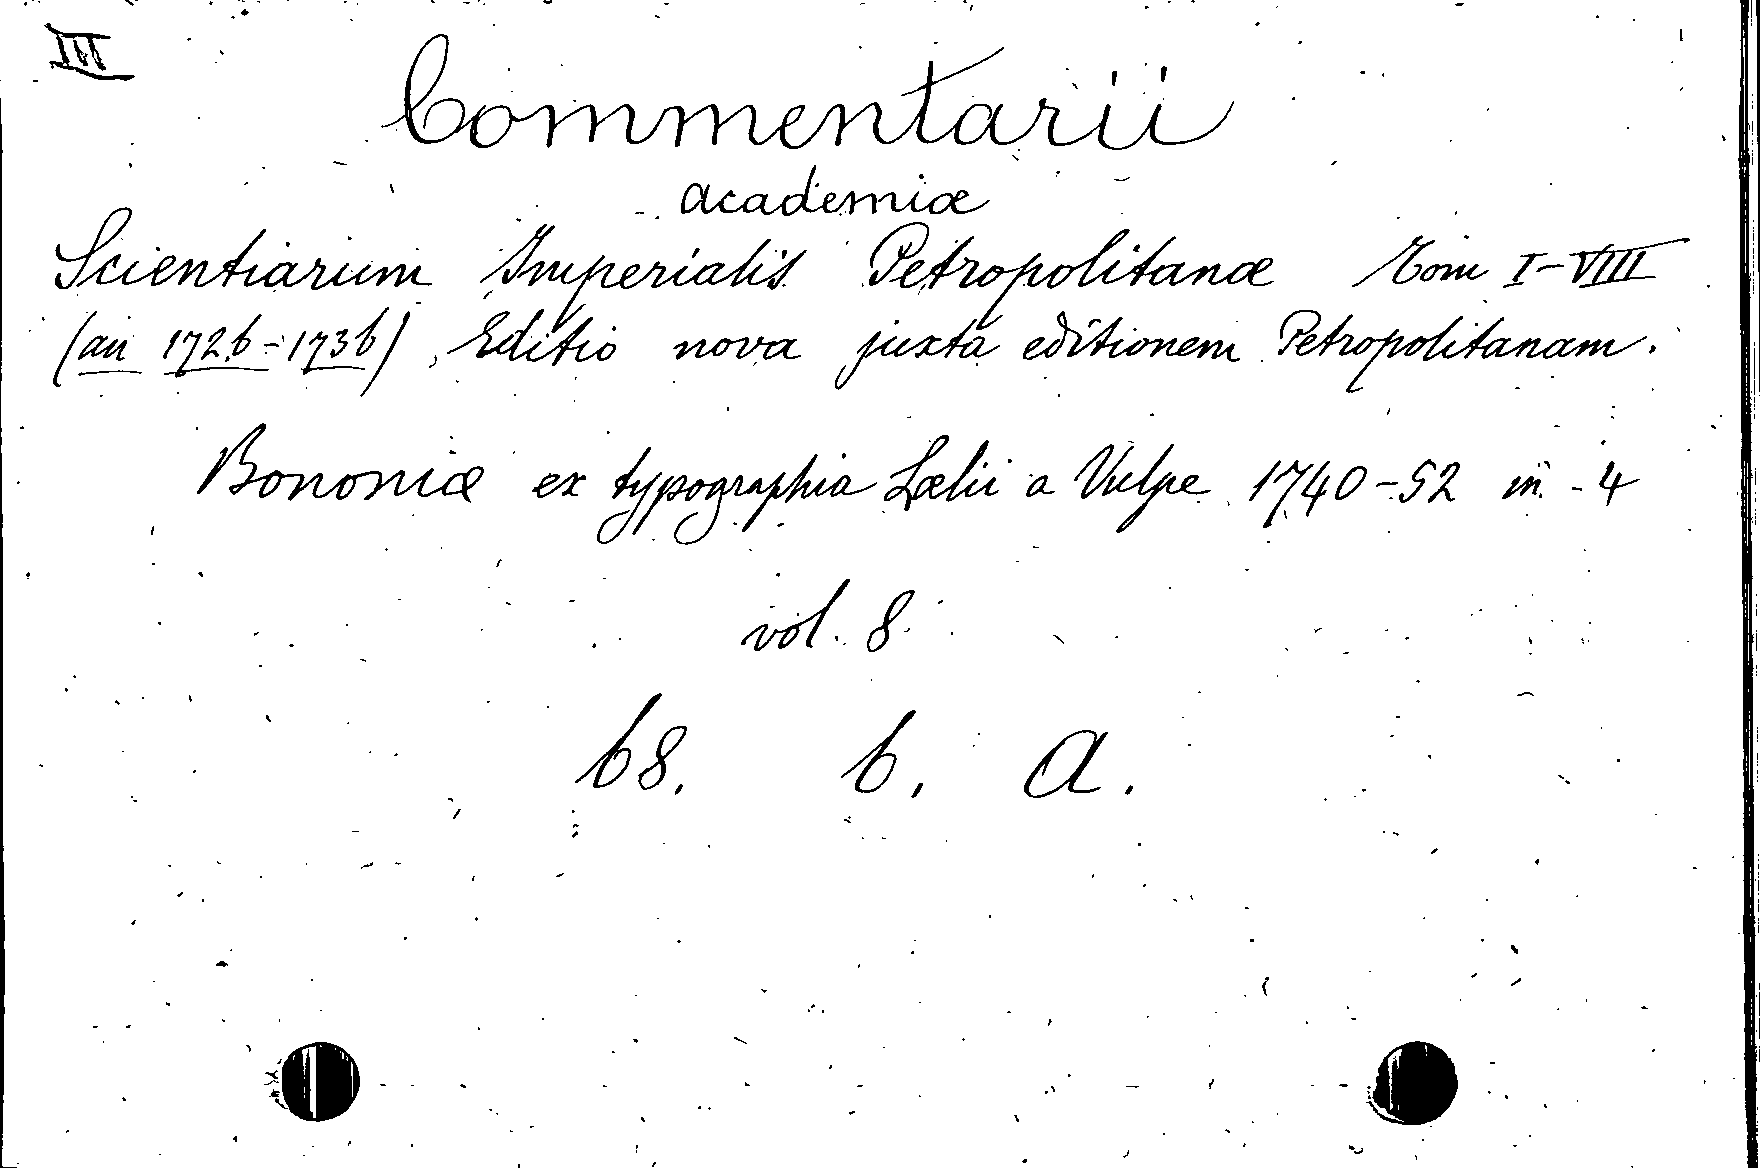 III
Commentarii
academiæ
Scientiarum Imperialis Petropolitanæ Tom I-VIII
(an 1726-1736) Editio nova juxta editionem Petropolitanam.
Bononiæ ex typographia Lælii a Vulpe 1740-52 in-4
vol. 8
68. 6, A.